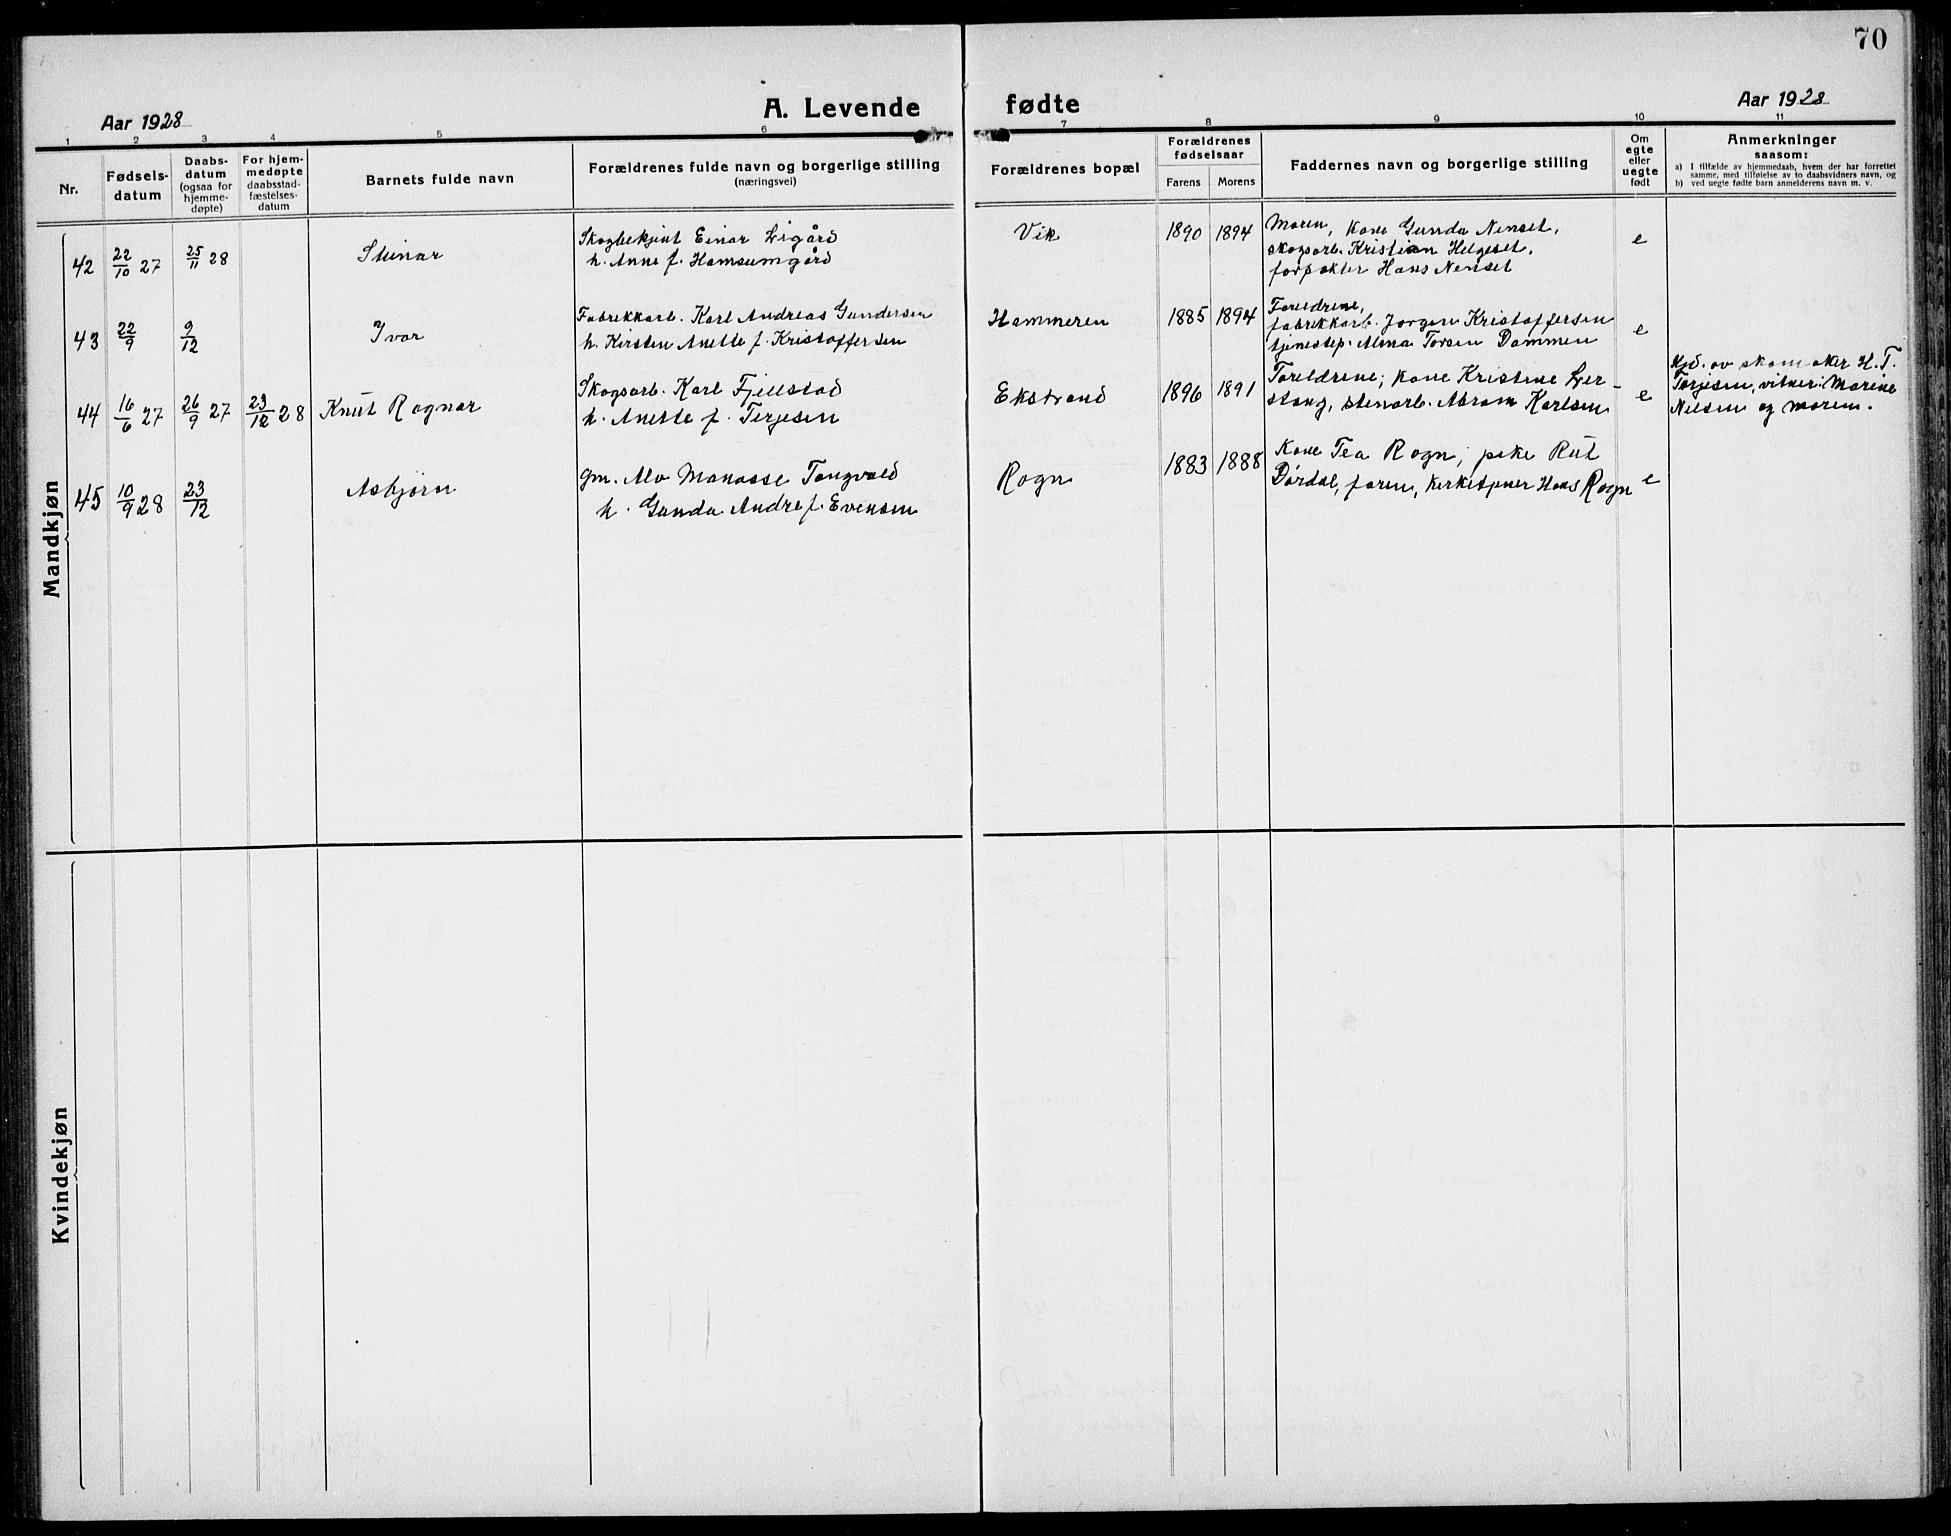 70
Aar 1928
A. Levende fødte
Aar 1928
1 2 3 4 5 6 7 8 9 10 11
Nr.
Fødsels-
datum
Daabs-
datum
(ogsaa for
hjemme-
døpte)
For hjem-
medøpte
daabsstad-
fæstelses-
datum
Barnets fulde navn
Forældrenes fulde navn og borgerlige stilling
(næringsvei)
Forældrenes bopæl
Forældrenes
fødselsaar
Farens Morens
Faddernes navn og borgerlige stilling
Om
egte
eller
uegte
født
Anmerkninger
saasom:
a) I tilfælde av hjemmedaab, hvem der har forrettet
samme, med tilføielse av to daabsvidners navn, og
b) ved uegte fødte barn anmelderens navn m. v.
Mandkjøn
42 22/10 27 25/11 28
Steinar
Skogbetjent Einar Ligård
h. Anne f. Hamsumgård
Vik
1890 1894
Moren, kone Gunda Nenset,
skogsarb. Kristian Helgeset,
forpakter Hans Nenset
e
43 22/9 9/12
Ivar
Fabrikkarb. Karl Andreas Gundersen
h. Kirsten Anette f. Kristoffersen
Hammeren
1885 1894
Foreldrene,
fabrikkarb. Jørgen Kristoffersen
tjenestep. Alma Torsen Dammen
e
44 16/6 27 26/9 27 23/12 28
Knut Ragnar
Skogsarb. Karl Fjellstad
h. Anette f. Terjesen
Ekstrand
1896 1891
Foreldrene; kone Kristine Ler-
stang, stenarb. Abram Karlsen
e
Hjd. av skomaker H. T.
Terjesen, vitner: Marine
Nilsen og moren.
45 10/9 28 23/12
Asbjørn
Gm. Alv Manasse Tangvald
h. Gunda Andrea f. Evensen
Rogn
1883 1888
Kone Tea Rogn, pike Rut
Dørdal, faren, kirketjener Hans Rogn
e
Kvindekjøn